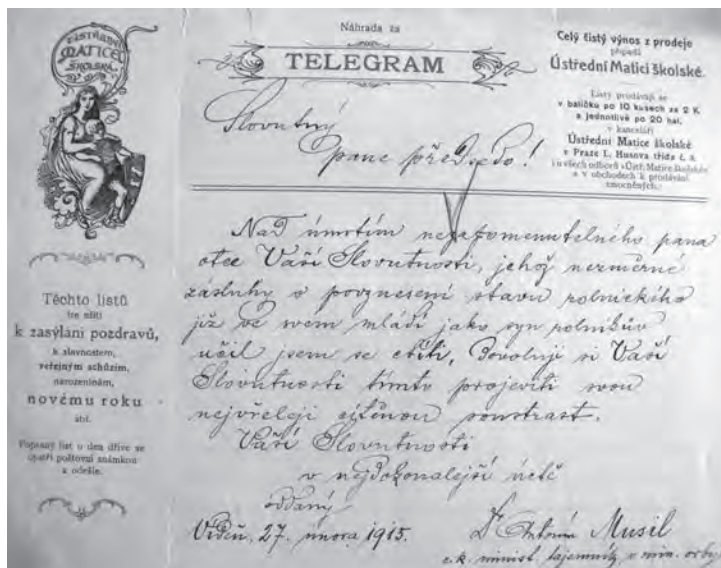 ÚSTŘEDNÍ
MATICE
ŠKOLSKÁ
Těchto listů
lze užíti
k zasýlání pozdravů,
k slavnostem,
veřejným schůzím,
narozeninám,
novému roku
atd.
Popsaný list o den dříve se
opatří poštovní známkou
a odešle.
Náhrada za
TELEGRAM
Celý čistý výnos z prodeje
připadá
Ústřední Matici školské.
Listy prodávají se
v balíčku po 10 kusech za 2 K
a jednotlivě po 20 hal.
v kanceláři
Ústřední Matice školské
v Praze I., Husova třída č.
i u všech odborů »Ústř. Matice školské«
a v obchodech k prodávání
zmocněných.
Slovutný
pane předsedo!
Nad úmrtím nezapomenutelného pana
otce Vaší Slovutnosti, jehož nezměrné
zásluhy o povznesení stavu rolnického
již ve svém mládí jako syn rolníkův
učil jsem se ctíti, dovoluji si Vaší
Slovutnosti tímto projeviti svou
nejvřeleji cítěnou soustrast.
Vaší Slovutnosti
v nejdokonalejší úctě
oddaný
Vídeň, 27. února 1915.
Dr Antonín Musil
c.k. minist. tajemník v min. orby